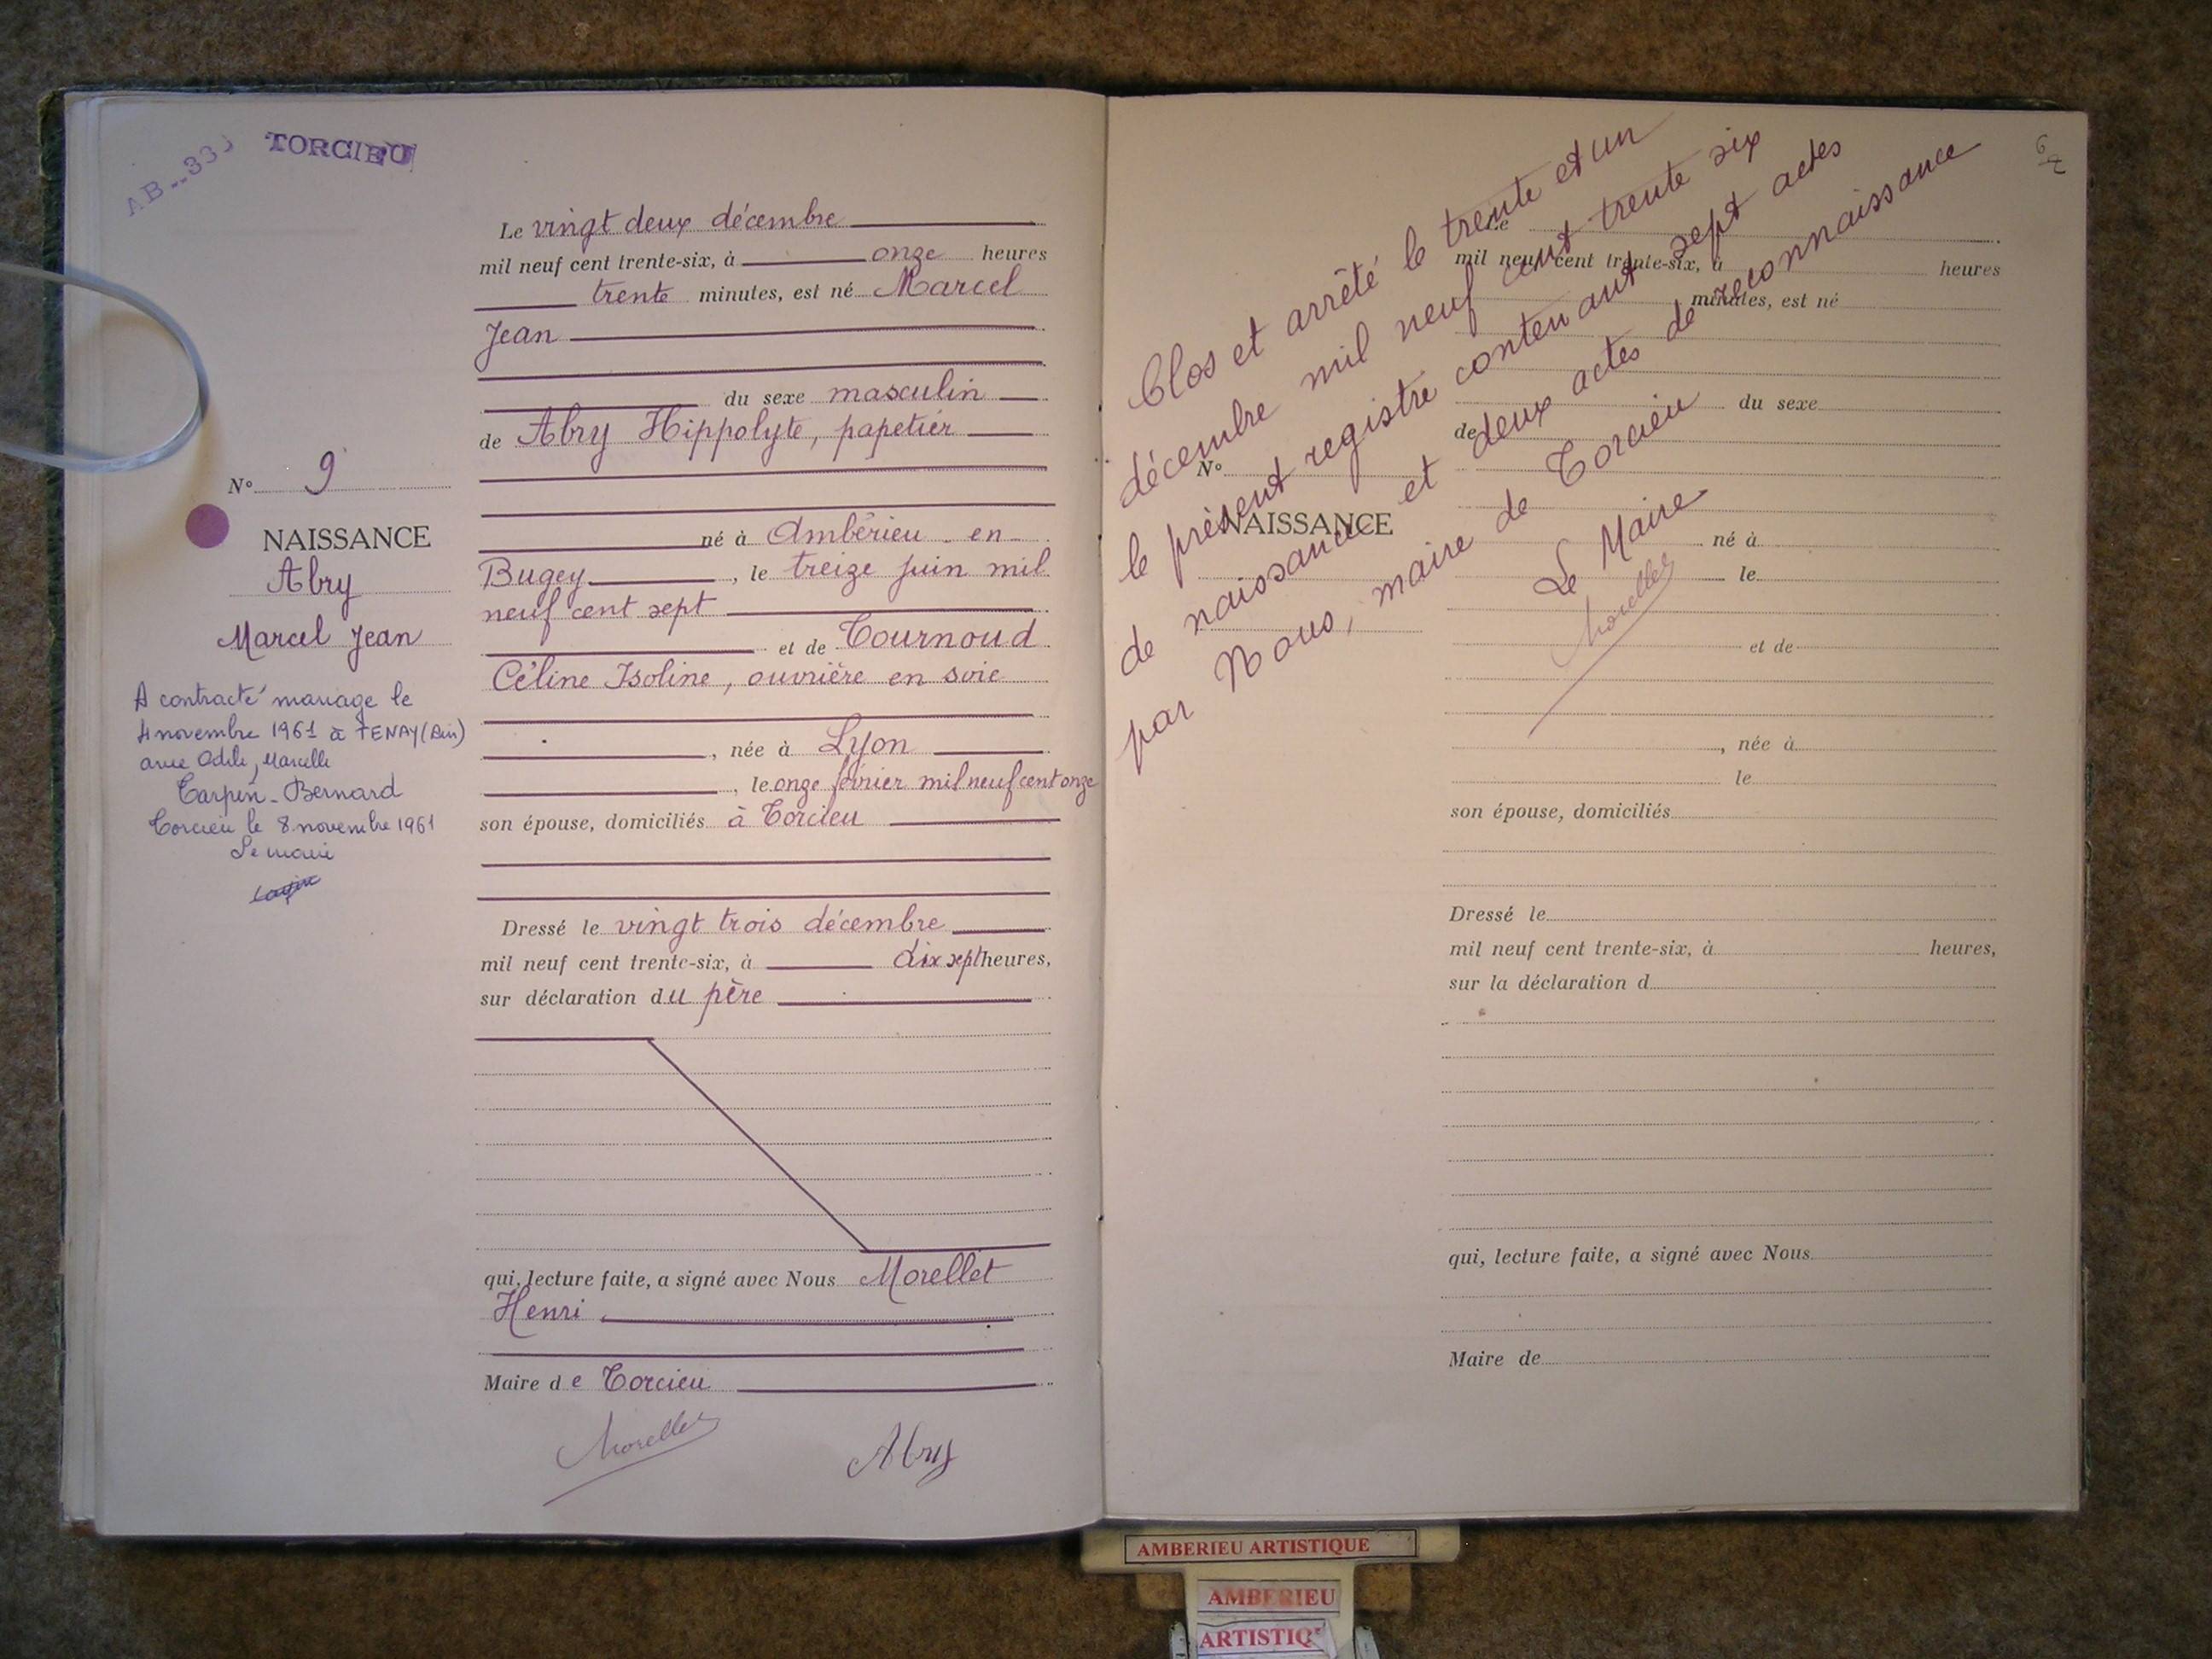 TORCIEU
Le vingt deux décembre
mil neuf cent trente-six, à onze heures
trente minutes, est né Marcel
Jean
du sexe masculin
de Abry Hippolyte, papetier
N° 9
NAISSANCE
Abry
Marcel Jean
A contracté mariage le
4 novembre 1961 à TENAY (Ain)
avec Odile, Marcelle
Tarpin-Bernard
Torcieu le 8 novembre 1961
Le maire
né à Ambérieu-en-
Bugey, le treize juin mil
neuf cent sept
et de Tournoud
Céline Isoline, ouvrière en soie
, née à Lyon
, le onze février mil neuf cent onze
son épouse, domiciliés à Torcieu
Dressé le vingt trois décembre
mil neuf cent trente-six, à dix sept heures,
sur déclaration du père
qui, lecture faite, a signé avec Nous Morellet
Henri
Maire de Torcieu
Morellet
Abry
Clos et arrêté le trente et un
décembre mil neuf cent trente six
le présent registre contenant sept actes
de naissance et deux actes de reconnaissance
par Nous, maire de Torcieu
Le Maire
Morellet
Le
mil neuf cent trente-six, à heures
minutes, est né
du sexe
de
N°
NAISSANCE
né à
le
et de
, née à
le
son épouse, domiciliés
Dressé le
mil neuf cent trente-six, à heures,
sur la déclaration d
qui, lecture faite, a signé avec Nous
Maire de
AMBERIEU ARTISTIQUE
AMBERIEU